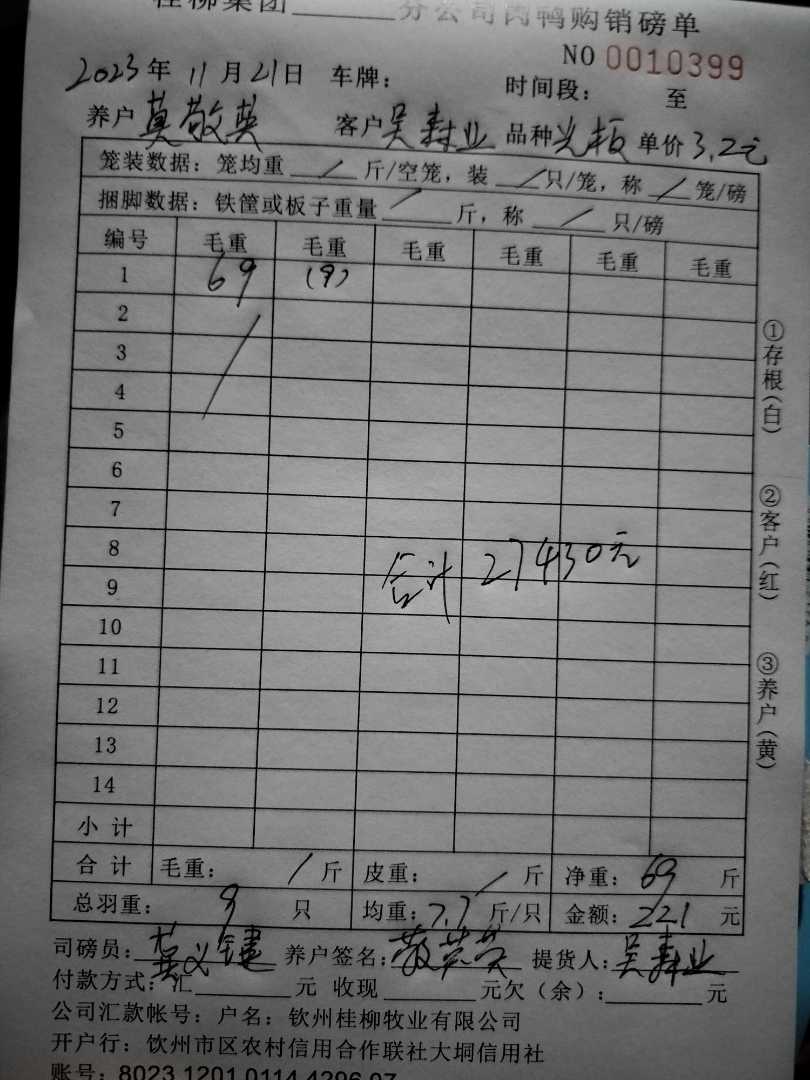 桂柳集团______分公司肉鸭购销磅单
NO 0010399
2023年 11月21日 车牌： 时间段： 至
养户 莫敬英 客户 吴寿业 品种 光板 单价 3.2元
笼装数据：笼均重 / 斤/空笼，装 / 只/笼，称 / 笼/磅
捆脚数据：铁筐或板子重量 / 斤，称 / 只/磅
编号 毛重 毛重 毛重 毛重 毛重 毛重
1 69 (9)
2
3
4
5
6
7
8
合计 27430元
9
10
11
12
13
14
小计
合计 毛重： / 斤 皮重： / 斤 净重：69 斤
总羽重： 9 只 均重：7.7 斤/只 金额：221 元
司磅员： 养户签名： 提货人：吴寿业
付款方式：汇______元 收现______元欠（余）：______元
公司汇款帐号：户名：钦州桂柳牧业有限公司
开户行：钦州市区农村信用合作联社大垌信用社
账号：8023 1201 0114 4296 07
①存根（白）
②客户（红）
③养户（黄）